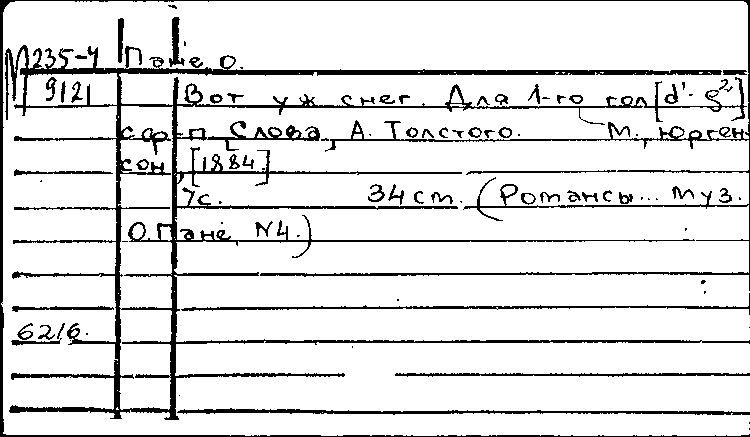 М235-4 Панё О.
9121 Вот уж снег. Для 1-го гол[d¹-g²]
с ф-п. Слова А. Толстого. М., Юрген
сон, [1884]
7с. 34 см. (Романсы... муз.
О. Панё, N4.)
6216.